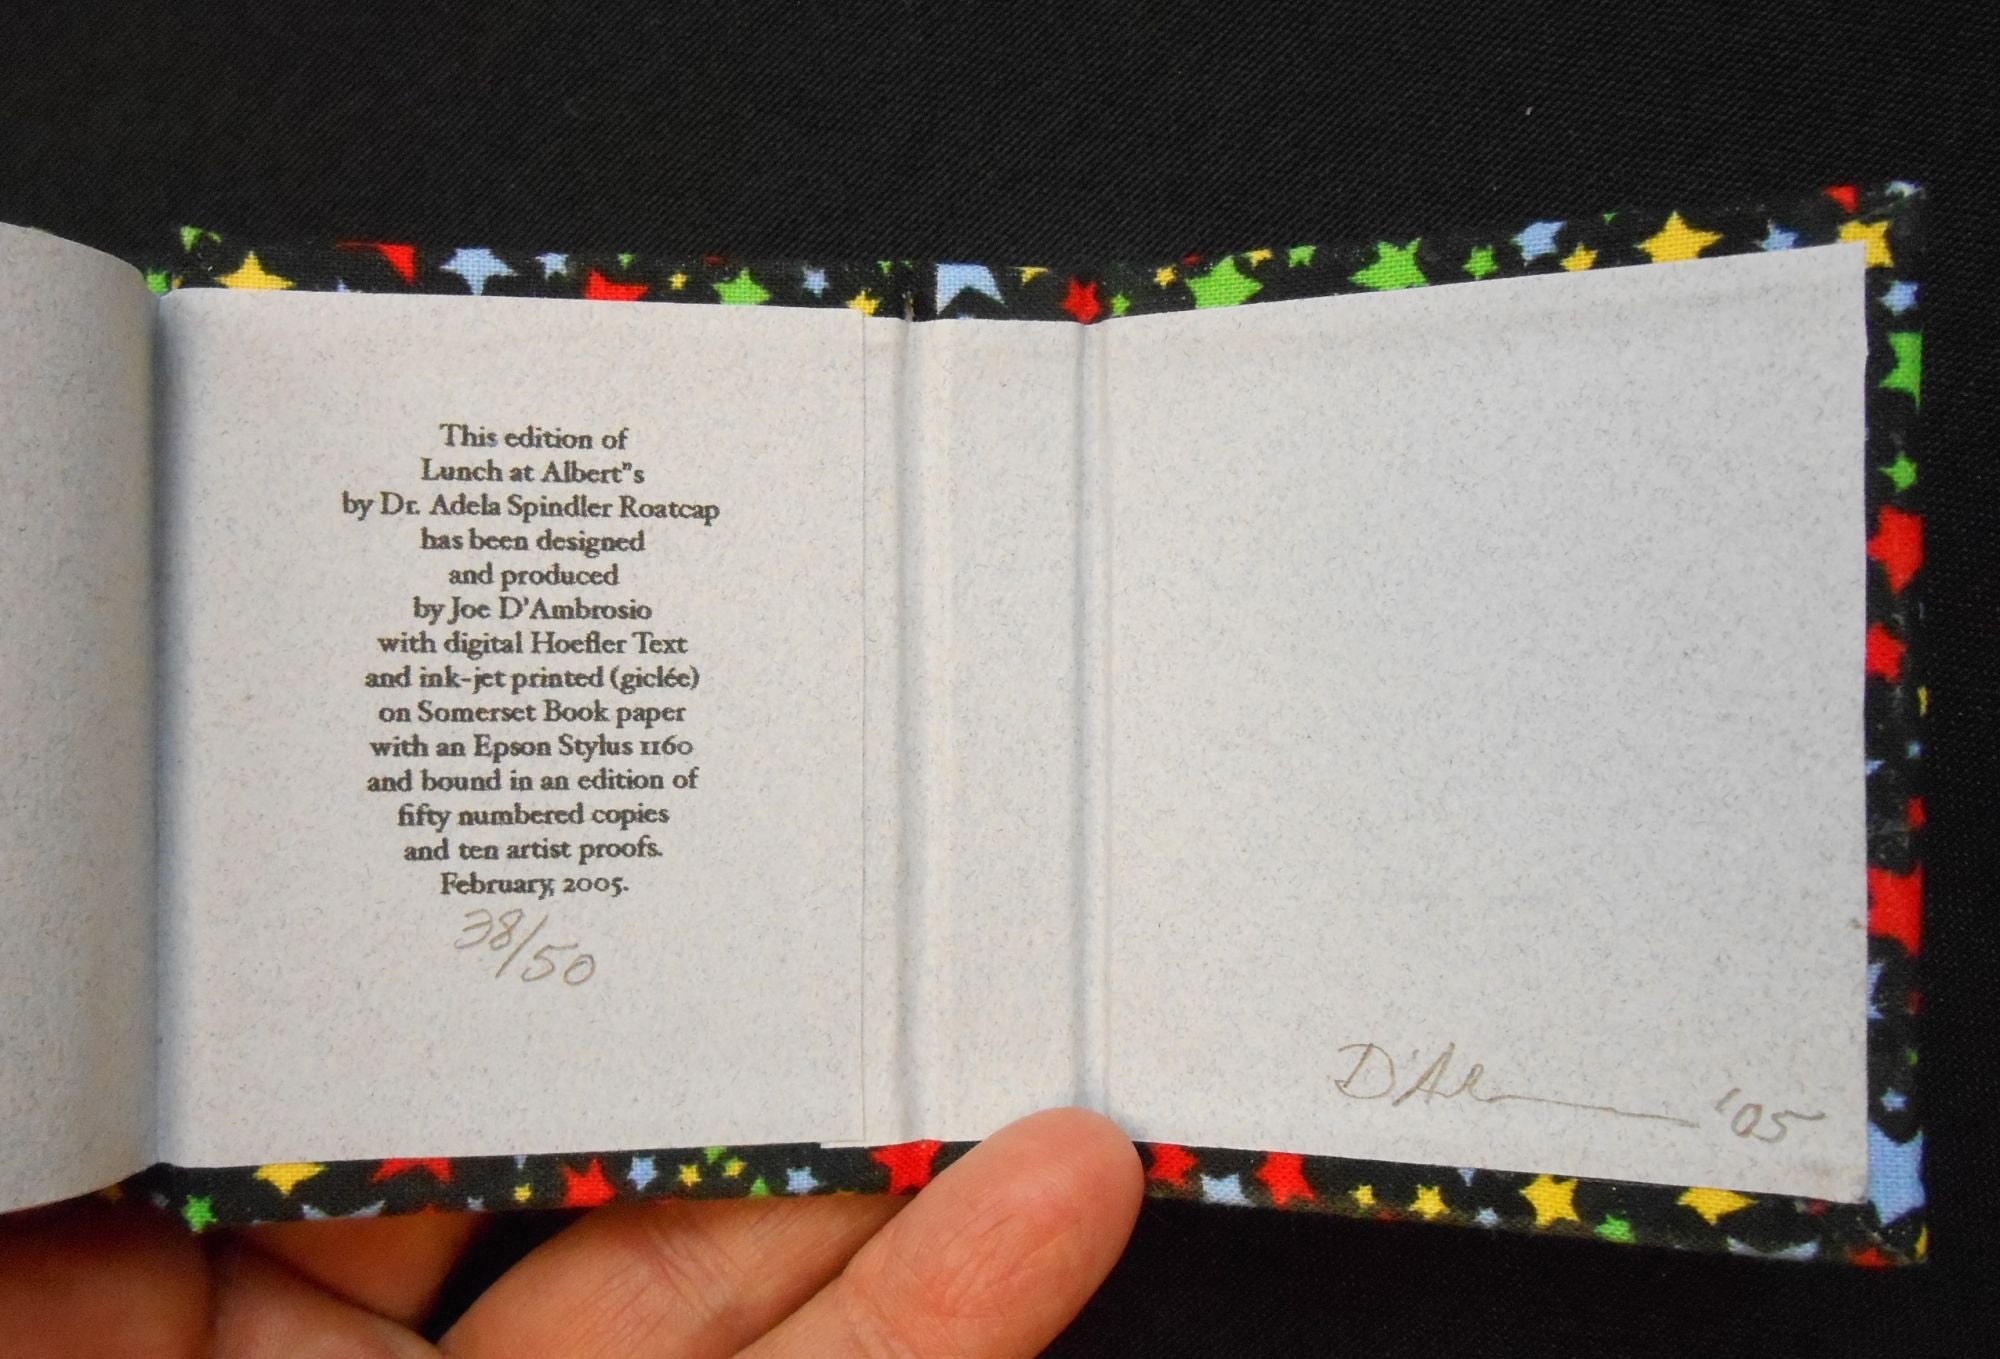 This edition of
Lunch at Albert"s
by Dr. Adela Spindler Roatcap
has been designed
and produced
by Joe D'Ambrosio
with digital Hoefler Text
and ink-jet printed (giclée)
on Somerset Book paper
with an Epson Stylus 1160
and bound in an edition of
fifty numbered copies
and ten artist proofs.
February, 2005.
38/50
'05